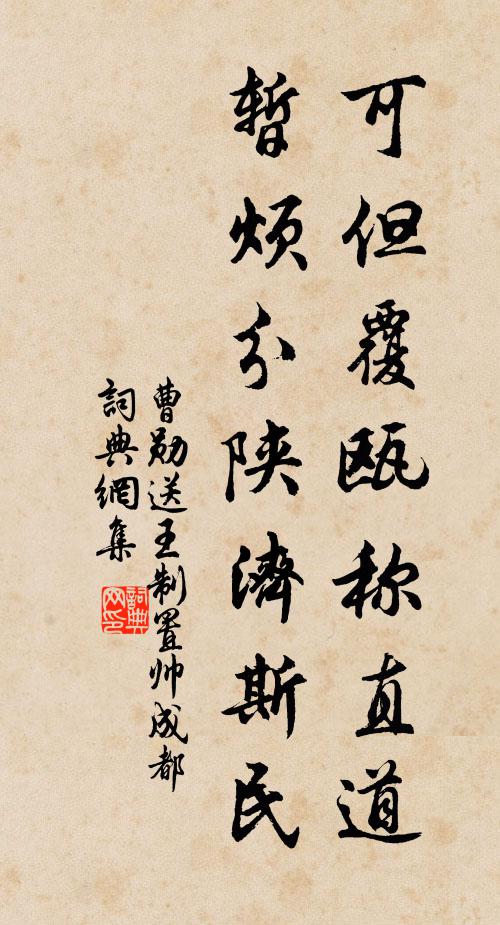 可但覆瓯称直道
暫煩分陕濟斯民
曹勛送王制置帅成都
詞典網集
詞典网印